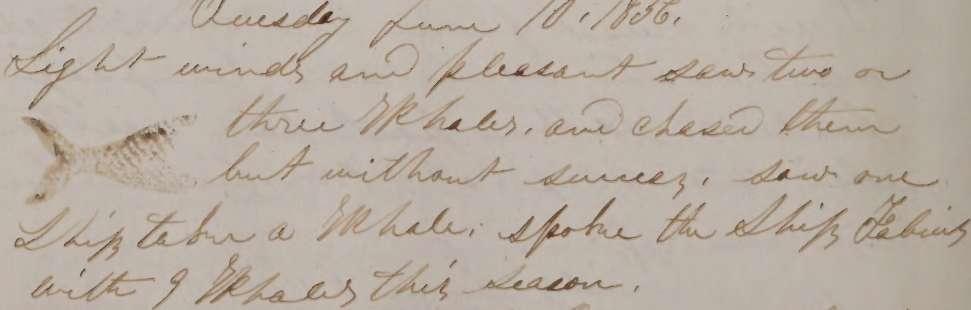 Tuesday June 10, 1856.
Light winds and pleasant saw two or
three Whales, and chased them
but without success, saw one
Ship take a Whale, spoke the Ship Fabius
with 9 Whales this season.